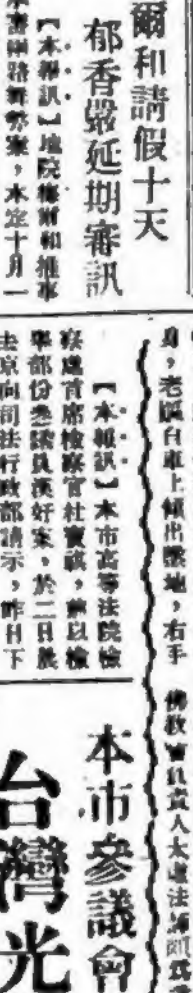 爾和請假十天
郁香嚴延期審訊
【本報訊】地院
和推事
舞弊案,本定十月一
身,老嫗自車上傾出墜地,右手
【本報訊】本市高等法院檢
察處首席檢察官杜
,前以檢
舉部份參議員漢奸案,於二日晨
去京向司法行政部請示,昨日下
佛教會負責人太虛法師
本市參議會
台灣光